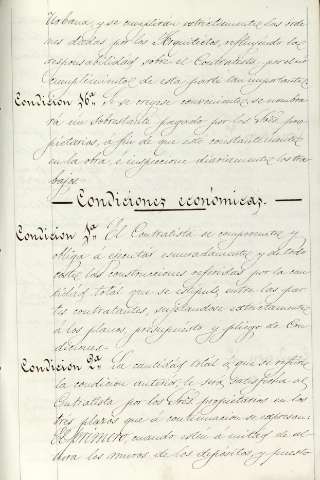 Urbana, y se cumplirán estrictamente las orde-
nes dadas por los Arquitectos, refluyendo la
responsabilidad sobre el Contratista por el in-
cumplimiento de esta parte tan importante.
Condición 16ª. Si se creyese conveniente se nombra-
rá un Sobrestante pagado por los Sres. pro-
pietarios, a fin de que esté constantemente
en la obra, e inspeccione diariamente los tra-
bajos.
— Condiciones económicas. —
Condición 1ª. El Contratista se compromete y
obliga á ejecutar esmeradamente y de todo
coste, las construcciones referidas por la can-
tidad total que se estipule entre las par-
tes contratantes, sujetandose estrictamente
á los planos, presupuesto y pliego de Con-
diciones.
Condición 2ª. La cantidad total á que se refiere
la condición anterior, le será satisfecha al
Contratista por los Sres. propietarios en los
tres plazos que á continuación se expresan:
El primero, cuando estén a mitad de al-
tura los muros de los depósitos, y puesto